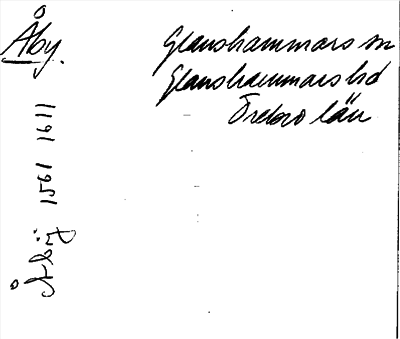 Åby.
Glanshammars sn
Glanshammars hd
Örebro län
Åbÿ 1561 1611